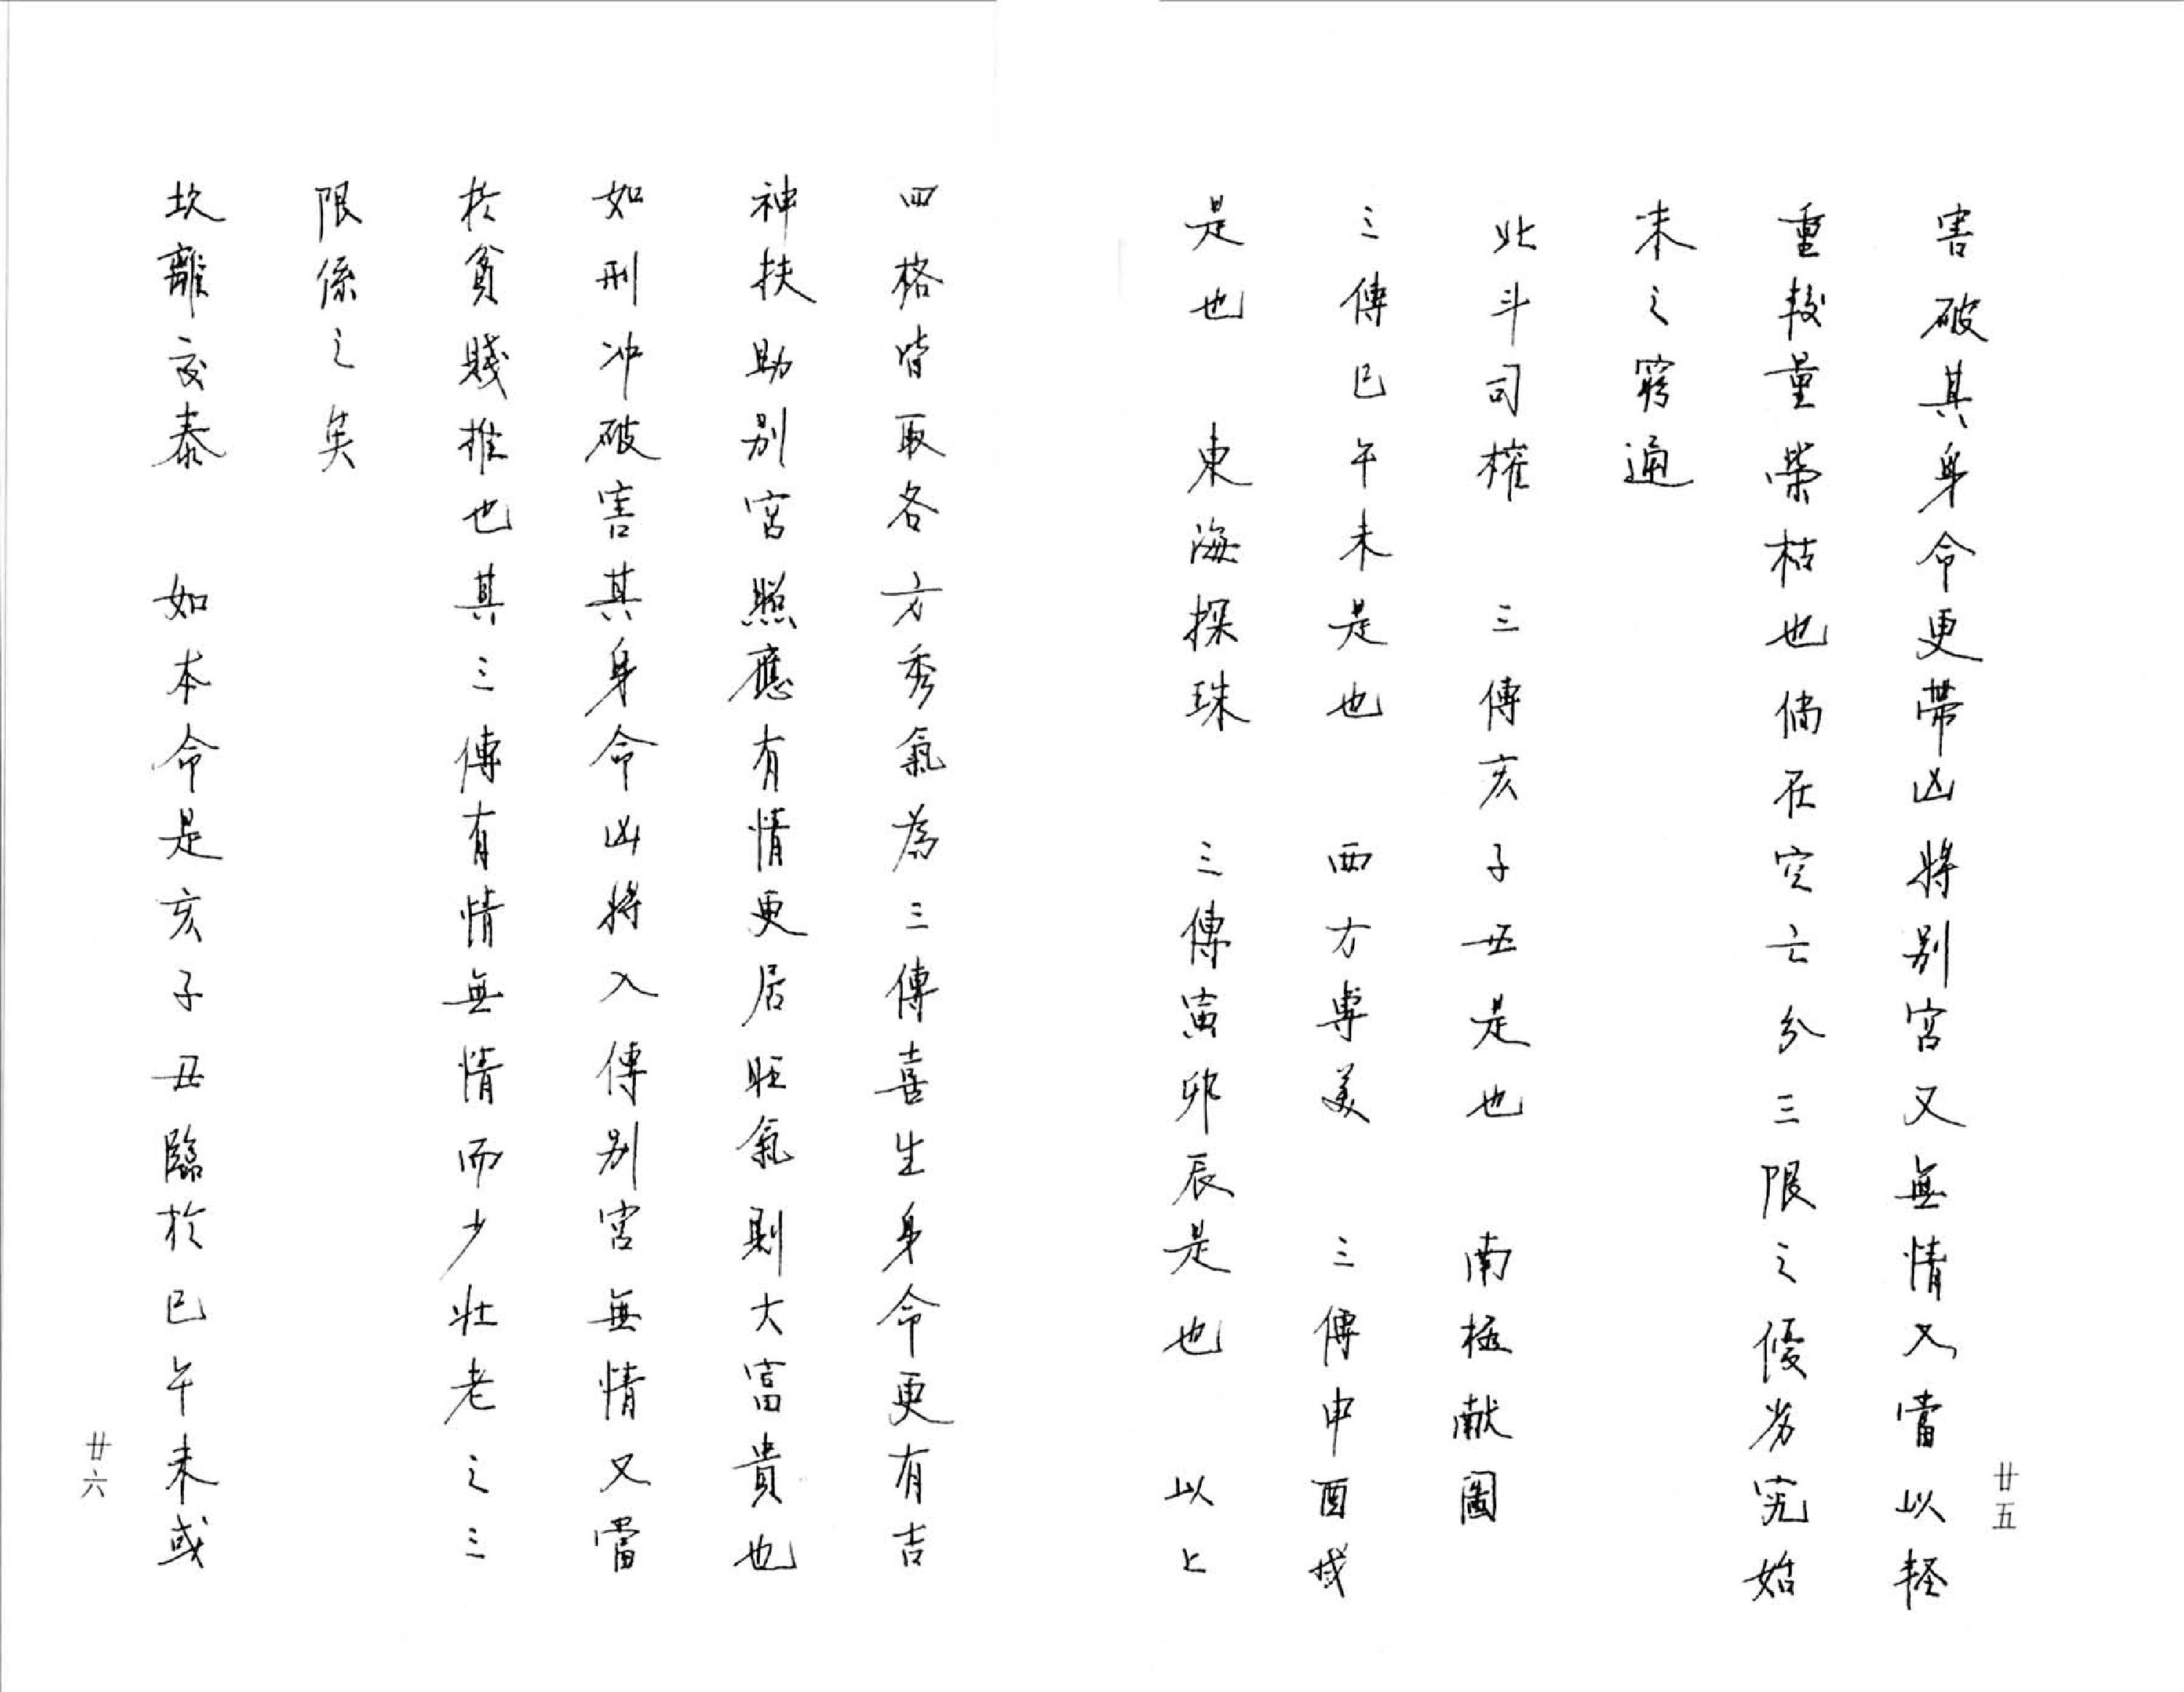 害破其身命更帶凶將别宮又無情又當以輕
重較量榮枯也倘在空亡分三限之優劣究始
末之窮通
北斗司權　三傳亥子丑是也　南極献圖
三傳巳午未是也　西方專美　三傳申酉戌
是也　東海探珠　三傳寅卯辰是也　以上
廿五
四格皆取各方秀氣為三傳喜生身命更有吉
神扶助别宮照應有情更居旺氣則大富貴也
如刑冲破害其身命凶將入傳别宮無情又當
於貧賤推也其三傳有情無情而少壯老之三
限係之矣
坎離交泰　如本命是亥子丑臨於巳午未或
廿六